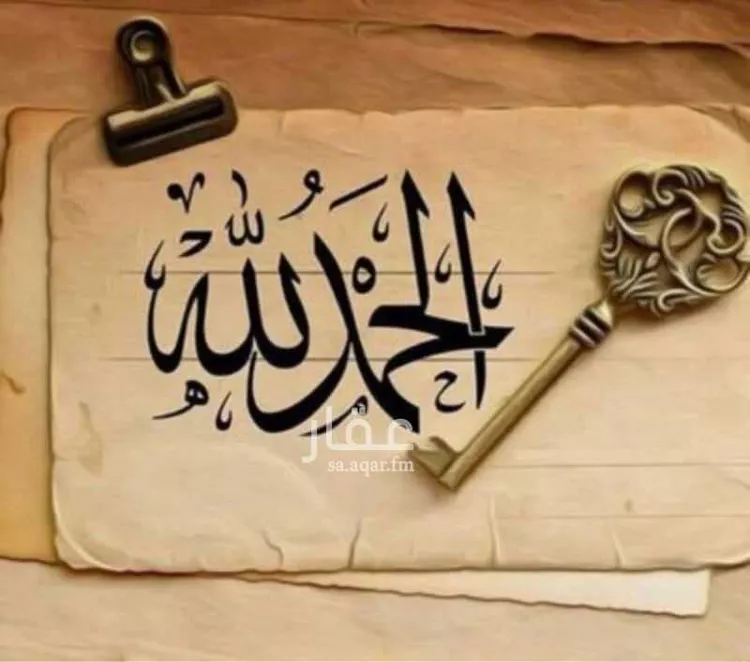 الحمدُ لله
عقار
sa.aqar.fm